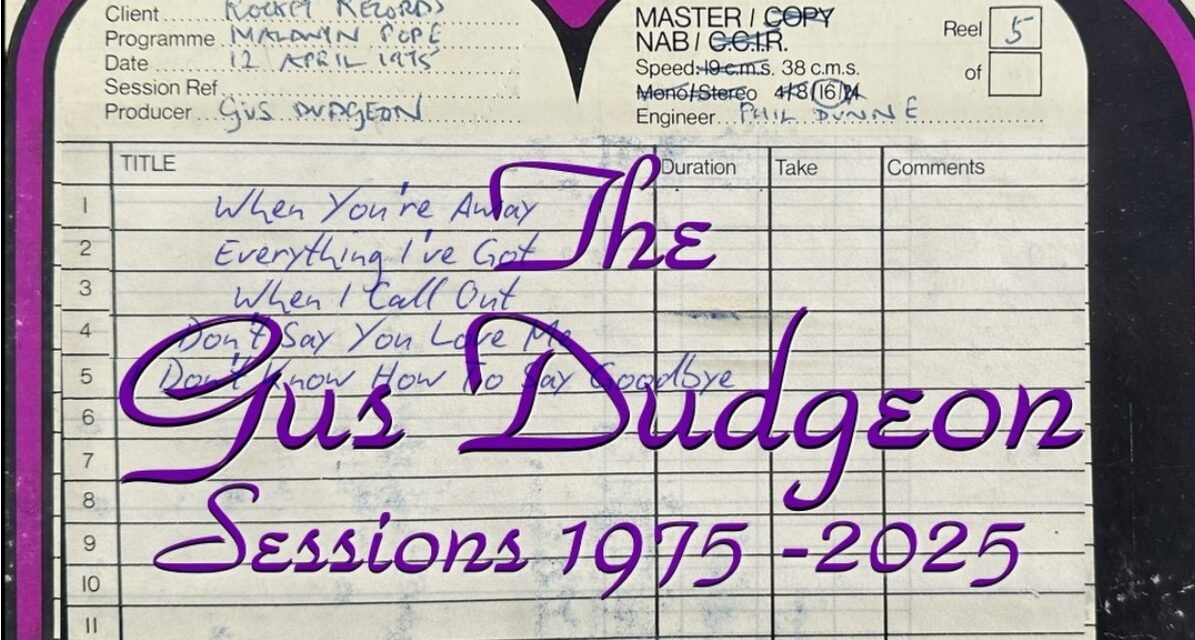 Client ROCKET RECORDS
Programme MALDWYN POPE
Date 12 APRIL 1975
Session Ref
Producer GUS DUDGEON
MASTER / COPY
NAB / C.C.I.R.
Speed: 19 c.m.s. 38 c.m.s.
Mono/Stereo 4/8/16/24
Engineer PHIL DUNNE
Reel 5
of
TITLE Duration Take Comments
1 When You're Away
2 Everything I've Got
3 When I Call Out
4 Don't Say You Love Me
5 Don't Know How To Say Goodbye
6
7
8
9
10
11
The
Gus Dudgeon
Sessions 1975 -2025